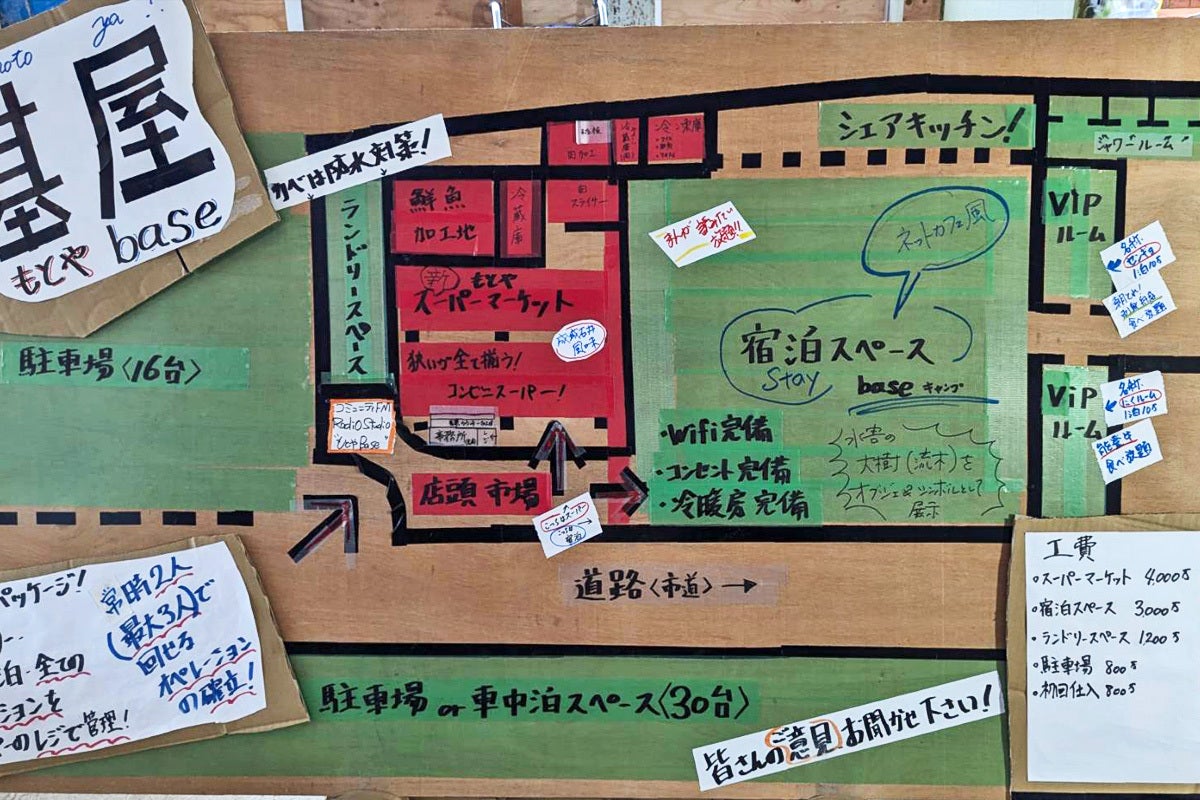 moto ya
基屋
もとや base
カベは防水対策!
ランドリースペース
駐車場〈16台〉
鮮魚
加工地
冷蔵庫
肉
スライサー
肉加工
新 もとや
スーパーマーケット
成城石井
風味
狭いが全て揃う!
コンビニスーパー!
事務所
コミュニティFM
Radio Studio
もとやBase
店頭市場
こっちはスーパー
シェアキッチン!
まんが
放題!!
ネットカフェ風
宿泊スペース
Stay
base キャンプ
・Wifi完備
・コンセント完備
・冷暖房完備
水害の
大樹(流木)を
オブジェ&シンボルとして
展示
シャワールーム
VIP
ルーム
名称
1泊10万
食べ放題
ViP
ルーム
名称
1泊10万
能登牛
食べ放題
道路〈市道〉→
駐車場 or 車中泊スペース〈30台〉
皆さんのご意見お聞かせ下さい!
パッケージ!
泊・全ての
ションを
ーのレジで管理!
常時2人
(最大3人)で
回せる
オペレーション
の確立!
工費
・スーパーマーケット 4,000万
・宿泊スペース 3,000万
・ランドリースペース 1200万
・駐車場 800万
・初回仕入 800万